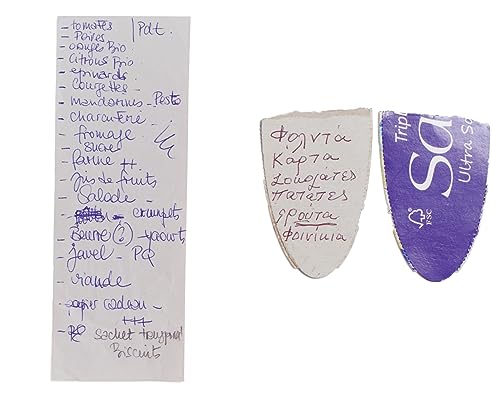 - tomates | Pdt.
- Poires
- oranges Bio
- Citrons Bio
- epinards.
- Courgettes -
- mandarines - Pesto
- charcuterie -
- fromage
- sucre
- farine ++
- Jus de fruits
- Salade -
- crumpets
- Beurre (2) - yaourts
- javel - PQ
- viande
- papier cadeau -
+++
- sachet
Biscuits
Φολντά
Κάρτα
Σοκολάτες
Πατάτες
φρούτα
Φοινίκια
Tripl
sa
Ultra So
FSC